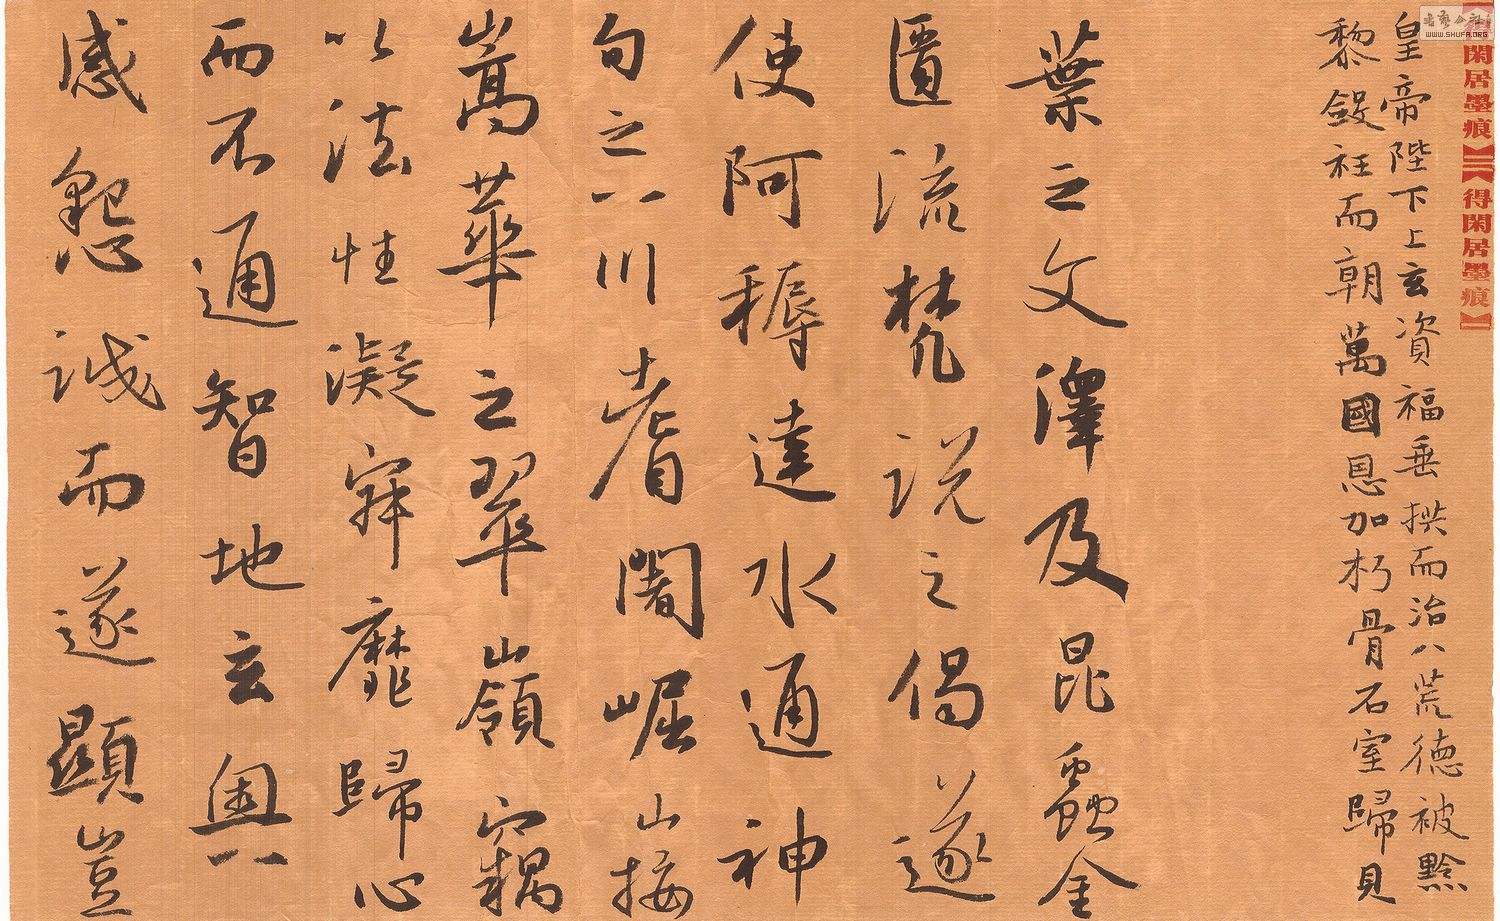 書藝公社
WWW.SHUFA.ORG
閑居墨痕】【得閑居墨痕】
皇帝陛下上玄資福垂拱而治八荒德被黔
黎斂衽而朝萬國恩加朽骨石室歸貝
葉之文澤及昆蟲金
匱流梵說之偈遂
使阿耨達水通神
甸之八川耆闍崛山接
嵩華之翠嶺竊
以法性凝寂靡歸心
而不通智地玄奧
感懇誠而遂顯豈